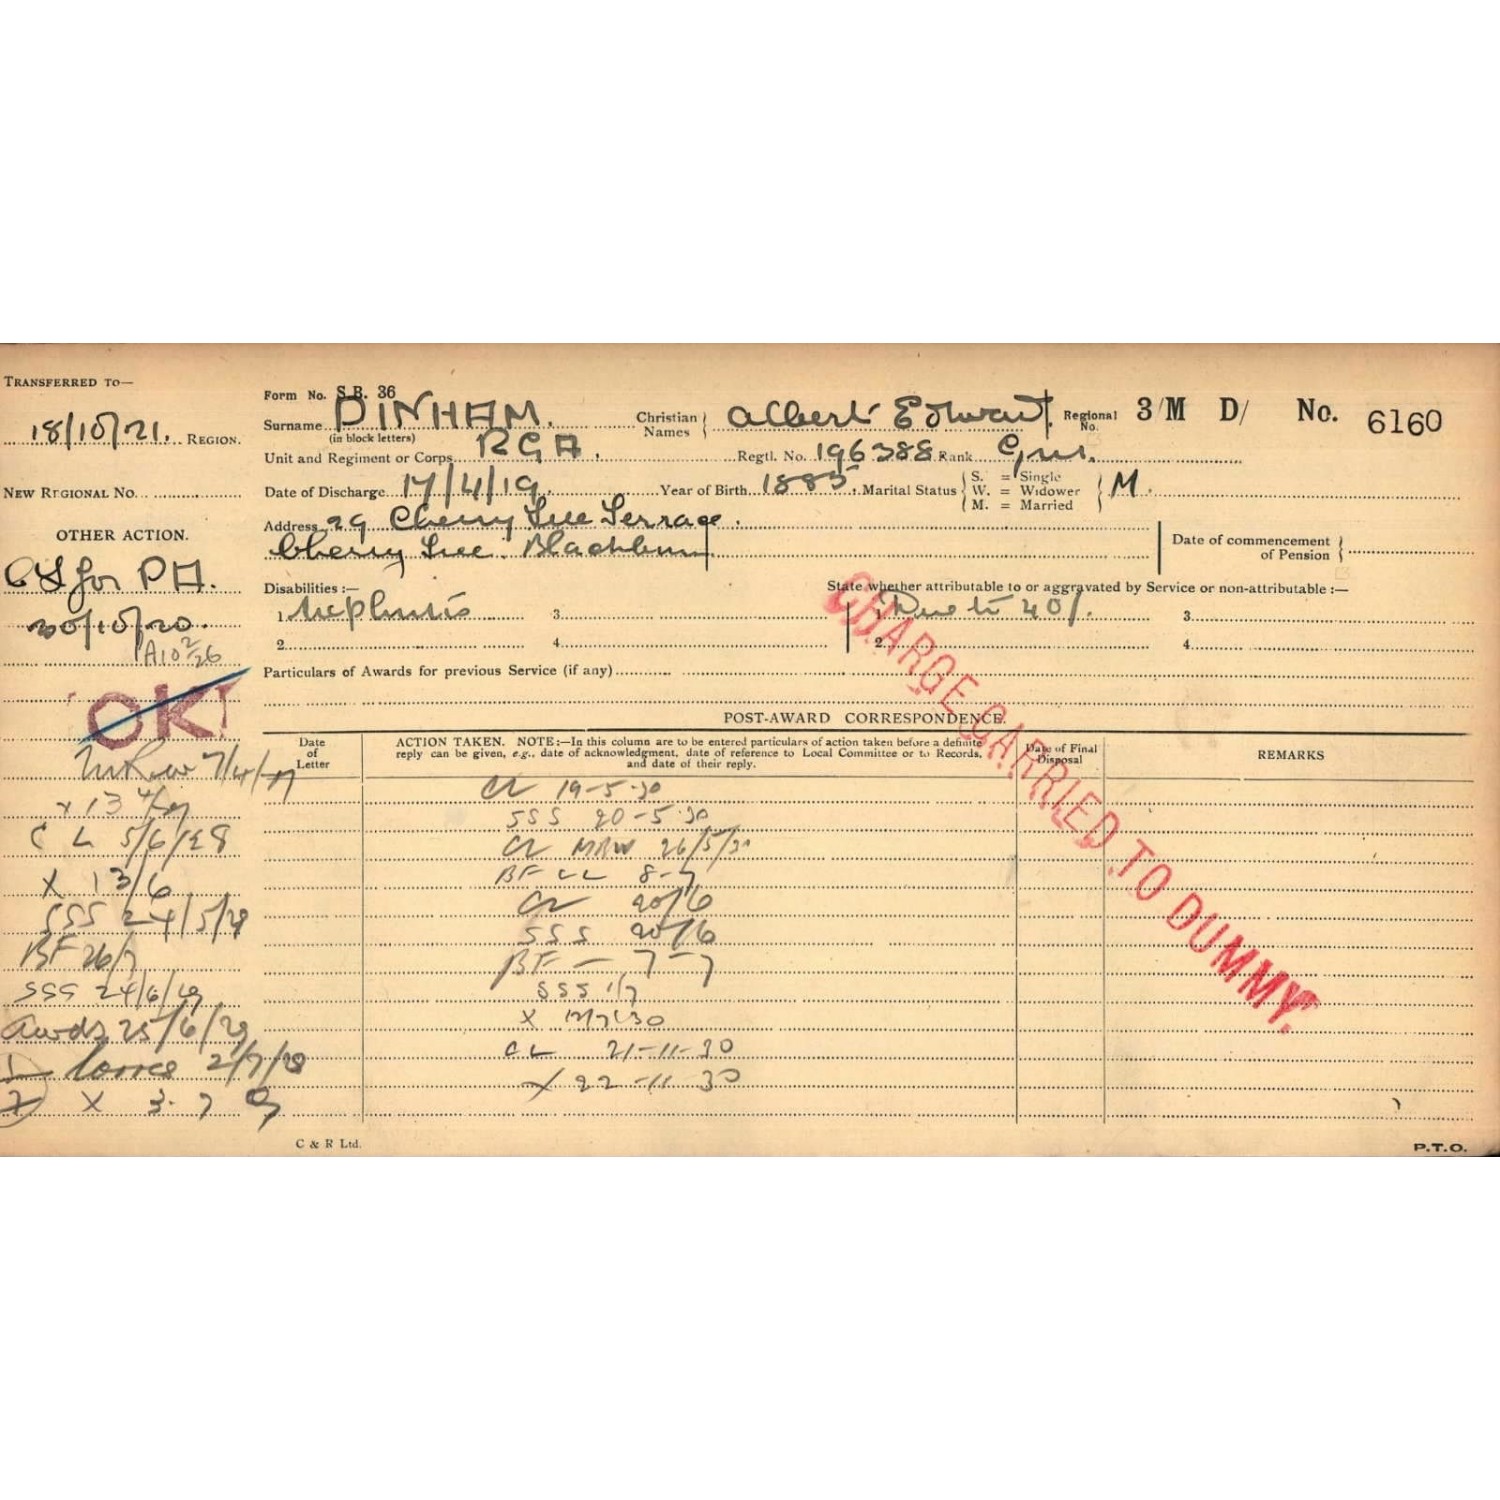 TRANSFERRED TO—
18/10/21. REGION.
NEW REGIONAL NO.
OTHER ACTION.
for PA.
20/10/20.
A10 2/26
OK!
7/4/
x 13
C L 5/6/28
X 13/6
SSS 24/5/29
BF 26/7
SSS 24/6/29
Awds 25/6/29
2/7/28
X 3.7 9
Form No. S.B. 36
Surname DINHAM. Christian Names Albert Edward. Regional No. 3/M D/ No. 6160
(in block letters)
Unit and Regiment or Corps RGA. Regtl. No. 196388 Rank Gnr.
Date of Discharge 17/4/19. Year of Birth 1885. Marital Status S. = Single W. = Widower M. = Married M.
Address 29 Cherry Tree Terrace.
Cherry Tree. Blackburn
Date of commencement of Pension
Disabilities :— State whether attributable to or aggravated by Service or non-attributable :—
1. Nephritis 3. 1. Due to 40%. 3.
2. 4. 2. 4.
Particulars of Awards for previous Service (if any)
POST-AWARD CORRESPONDENCE.
Date of Letter
ACTION TAKEN. NOTE:—In this column are to be entered particulars of action taken before a definite
reply can be given, e.g., date of acknowledgment, date of reference to Local Committee or to Records,
and date of their reply.
Date of Final Disposal
REMARKS
CL 19-5-30
SSS 20-5-30
CL MRW 26/5/30
BF CL 8-7
CL 20/6
SSS 20/6
BF — 7-7
SSS 1/7
X 30
CL 21-11-30
X 22-11-30
CHARGE CARRIED TO DUMMY.
C & R Ltd.
P.T.O.